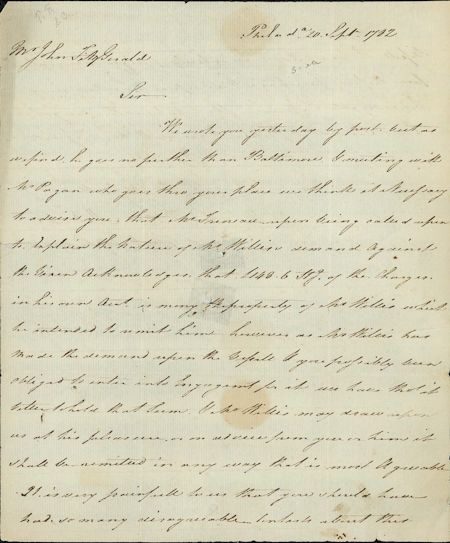 Philada. 20 Sept 1782
Mr John FitzGerald
Sir
We wrote you yesterday by post but as
we find he goes no further than Baltimore & meeting with
Mr Pagan who goes thro your place we think it Necessary
to advise you that Mr upon being called upon
to Explain the Nature of Mr Willis's demand against
the Acknowledges that £140.6 Stg. of the Charges
in his own Acct is money the property of Mr Willis which
he intended to remit him however as Mr Willis has
made the demand upon the & you possibly been
obliged to enter into for it we have
to hold that Sum & Mr Willis may draw upon
us at his pleasure or on advice from you or him it
shall be remitted in any way that is most Agreeable
It is very painfull to us that you should have
had so many disagreeable about this